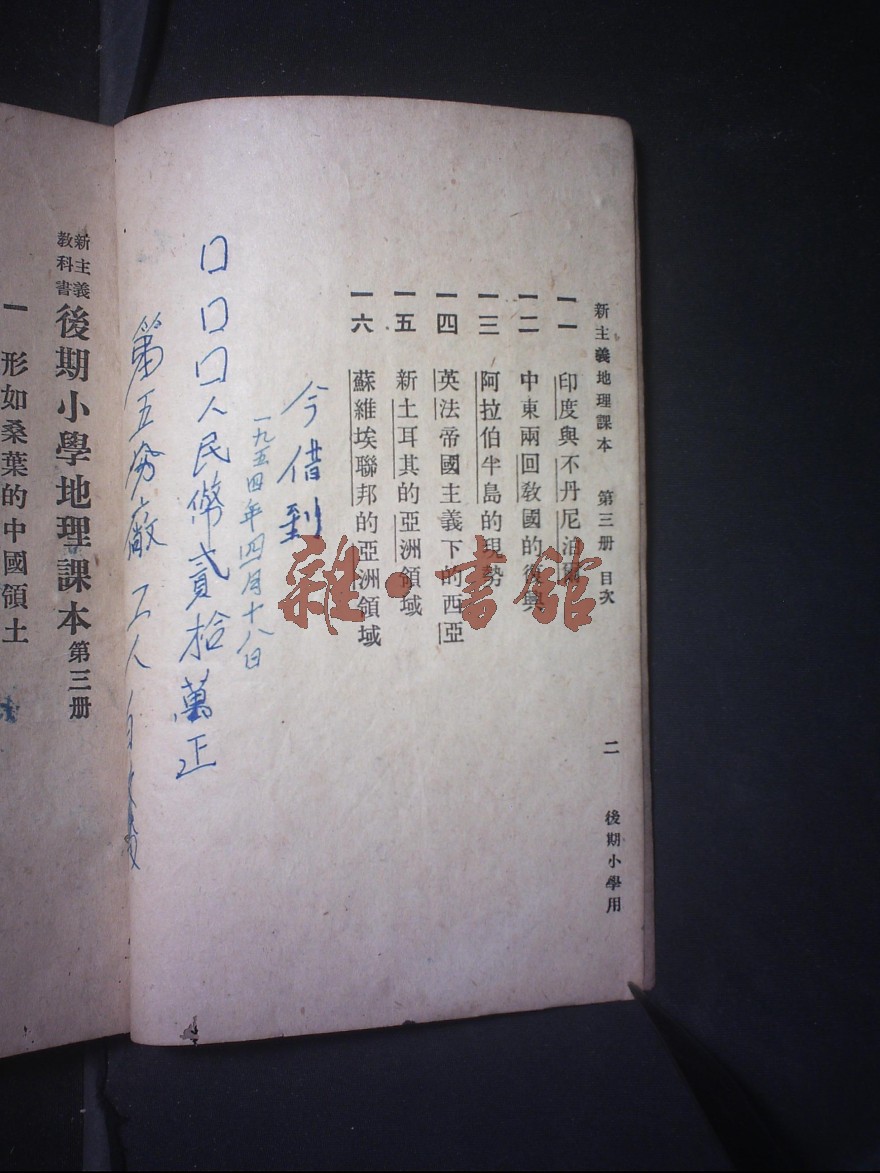 新主義地理課本 第三册 目次 二 後期小學用
一一 印度與不丹尼泊爾
一二 中東兩回教國的復興
一三 阿拉伯半島的現勢
一四 英法帝國主義下的西亞
一五 新土耳其的亞洲領域
一六 蘇維埃聯邦的亞洲領域
今借到
一九五四年四月十八日
口口口人民幣貳拾萬正
第五分廠工人
新主義教科書 後期小學地理課本 第三册
一 形如桑葉的中國領土
雜·書館